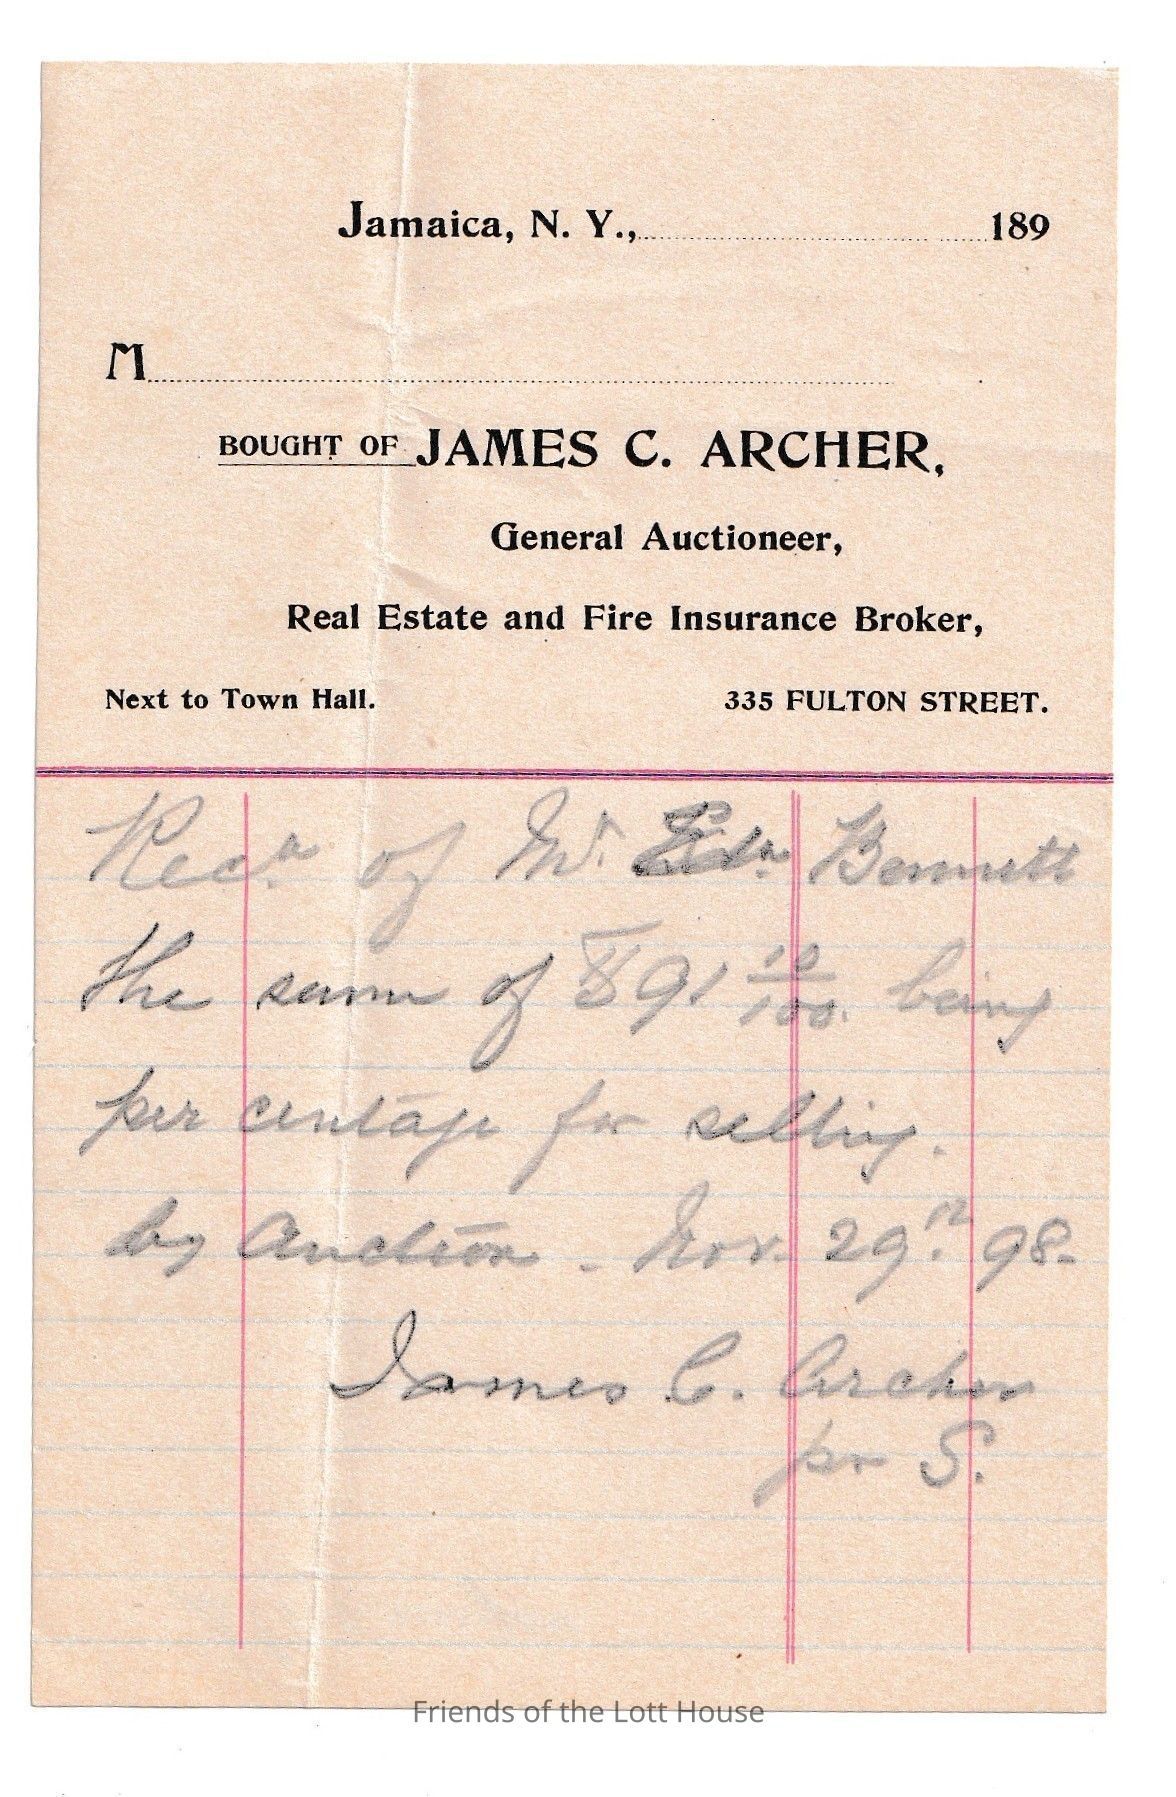 Jamaica, N. Y., 189
M
BOUGHT OF JAMES C. ARCHER,
General Auctioneer,
Real Estate and Fire Insurance Broker,
Next to Town Hall. 335 FULTON STREET.
Recd. of Mr. Edw. Bennett
the sum of $91 10/100. being
per centage for selling.
by Auction - Nov. 29th 98-
James C. Archer
pr S.
Friends of the Lott House